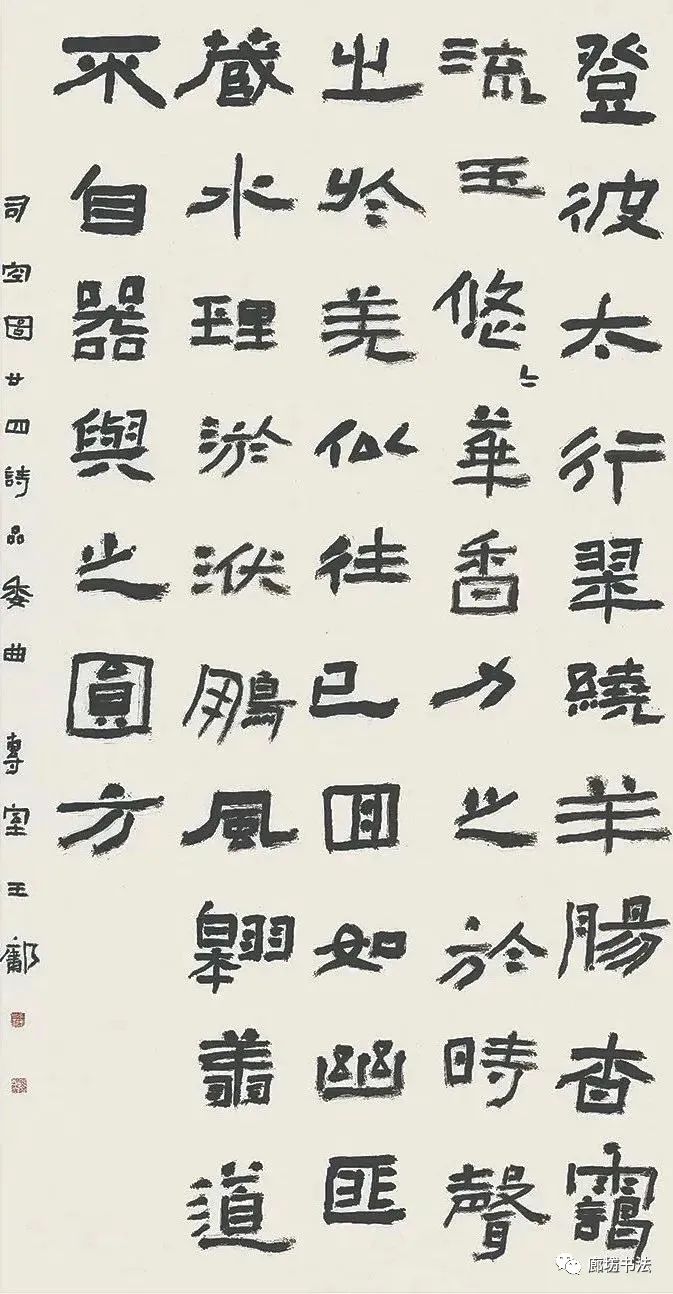 登彼太行翠繞羊腸杳靄
流玉悠〻華香力之於時聲
之於羌似往已囬如幽匪
藏水理淤洑鵬風翱翔道
不自器與之圓方
司空圖廿四詩品委曲 專室王
廊坊书法